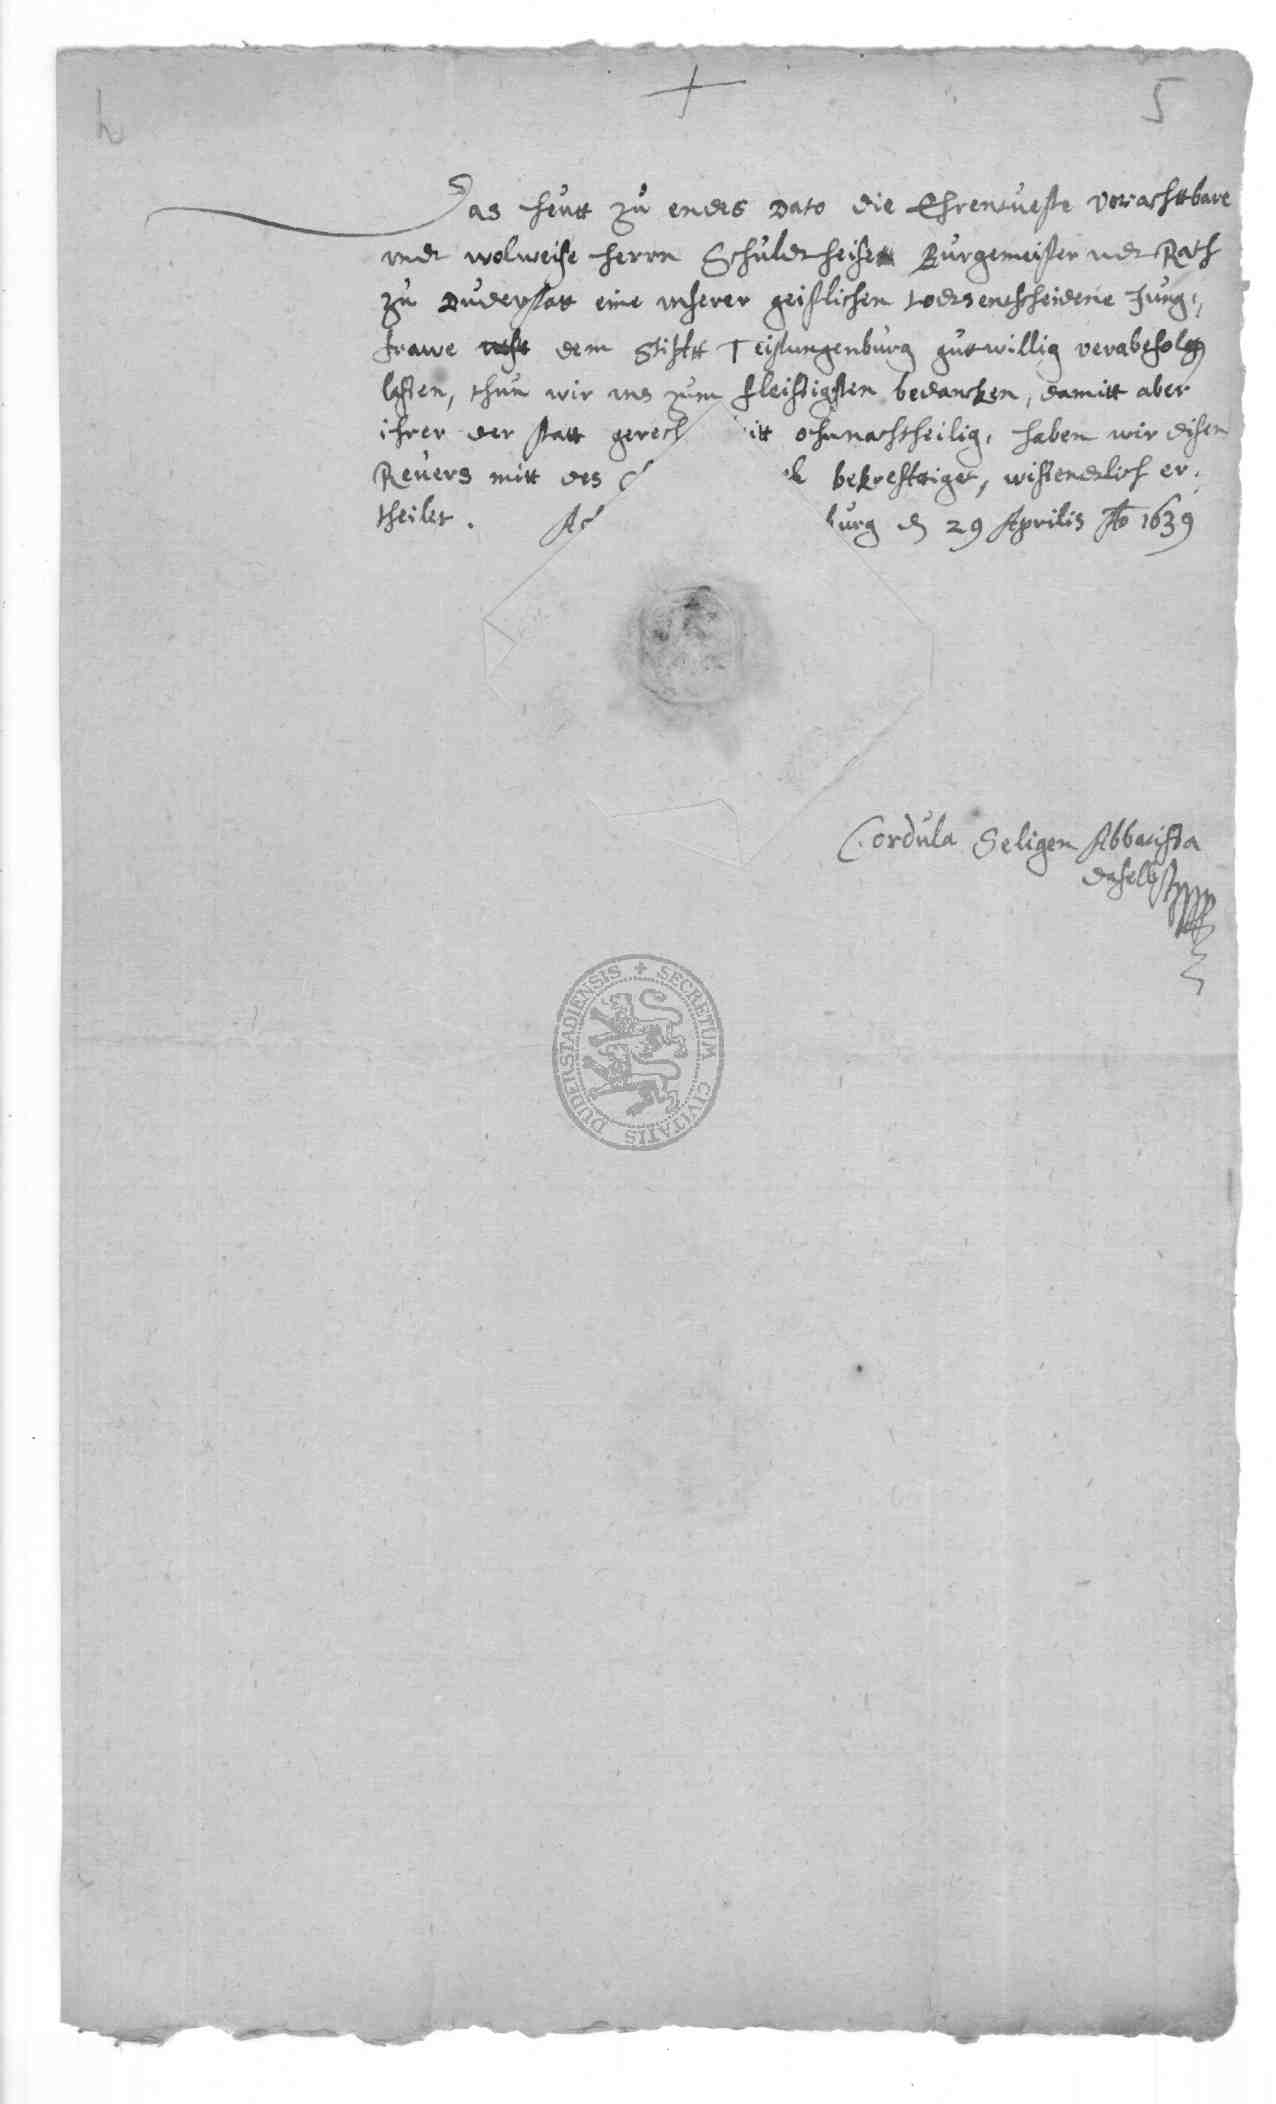 5
Das heutt zu endes Dato die Ehrenueste vorachtbare
vndt wolweise herrn Schuldtheise Burgemeister vndt Rath
zu Duderstatt eine vnserer geistlichen todtsentscheidene Jung,
frawe dem Stifftt Teistungenburg gutwillig verabefolgtt
lassen, thun wir vns zum fleissigsten bedancken, damitt aber
ihrer der statt gerech itt ohnnachtheilig, haben wir disen
Reuers mitt des bekrefftiget, wissendtlich er,
theilet. Ac burg d 29 Aprilis Ao 1639
Cordula Seligen Abbatissa
daselbst
SECRETUM CIVITATIS DUDERSTADIENSIS